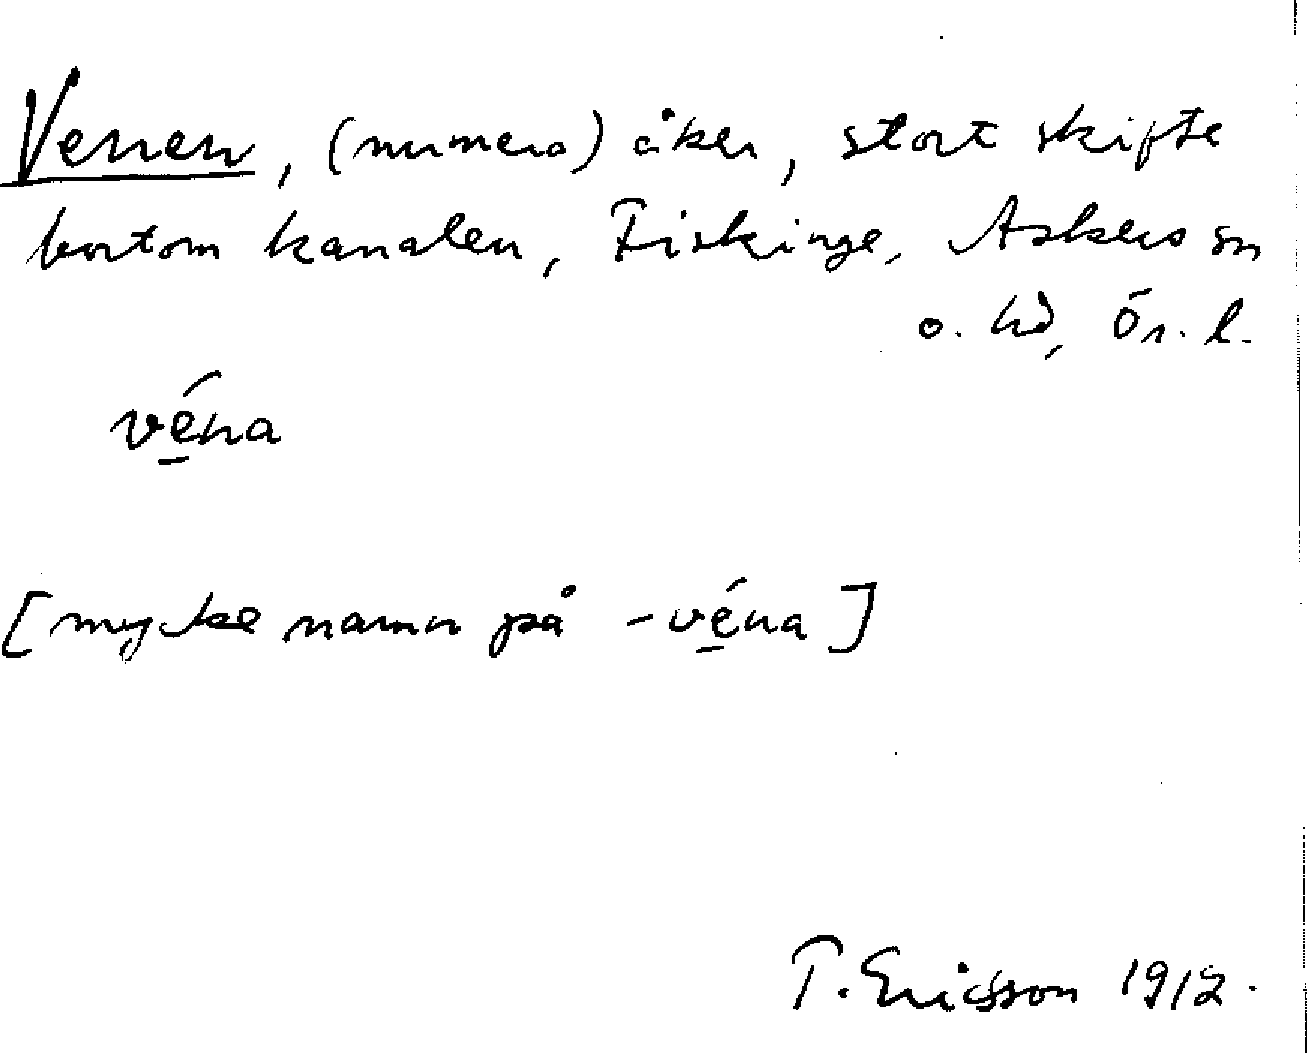 Venen, (numera) åker, stort skifte
bortom kanalen, Fiskinge, Askers sn
o. hd, Ör. l.
vé̱na
[mycke namn på -vé̱na]
T. Ericsson 1912.